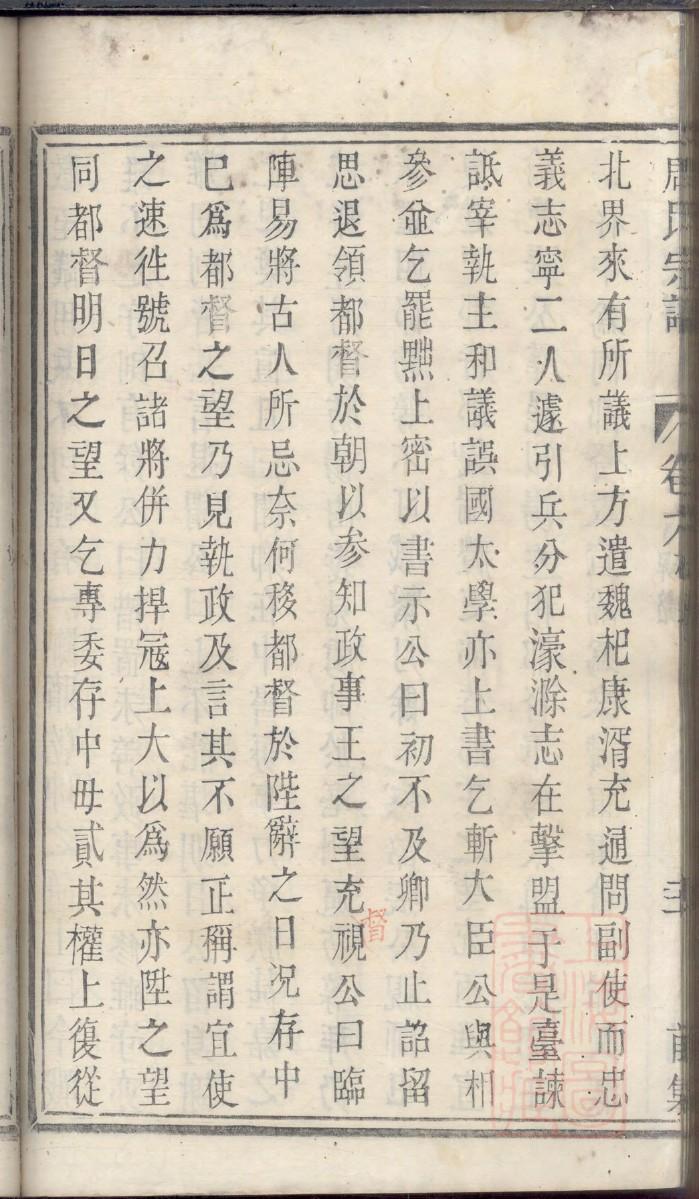 周氏宗譜 卷六 前集
北界來有所議上方遣魏杞康湑充通問副使而忠
義志寧二人遽引兵分犯濠滁志在擊盟于是臺諫
詆宰執主和議誤國太學亦上書乞斬大臣公與相
參並乞罷黜上密以書示公曰初不及卿乃止詔留
思退領都督於朝以參知政事王之望充視公曰臨
督
陣易將古人所忌奈何移都督於陛辭之日况存中
已爲都督之望乃見執政及言其不願正稱謂宜使
之速徃號召諸將併力捍冦上大以爲然亦陞之望
同都督明日之望又乞專委存中毋貳其權上復從